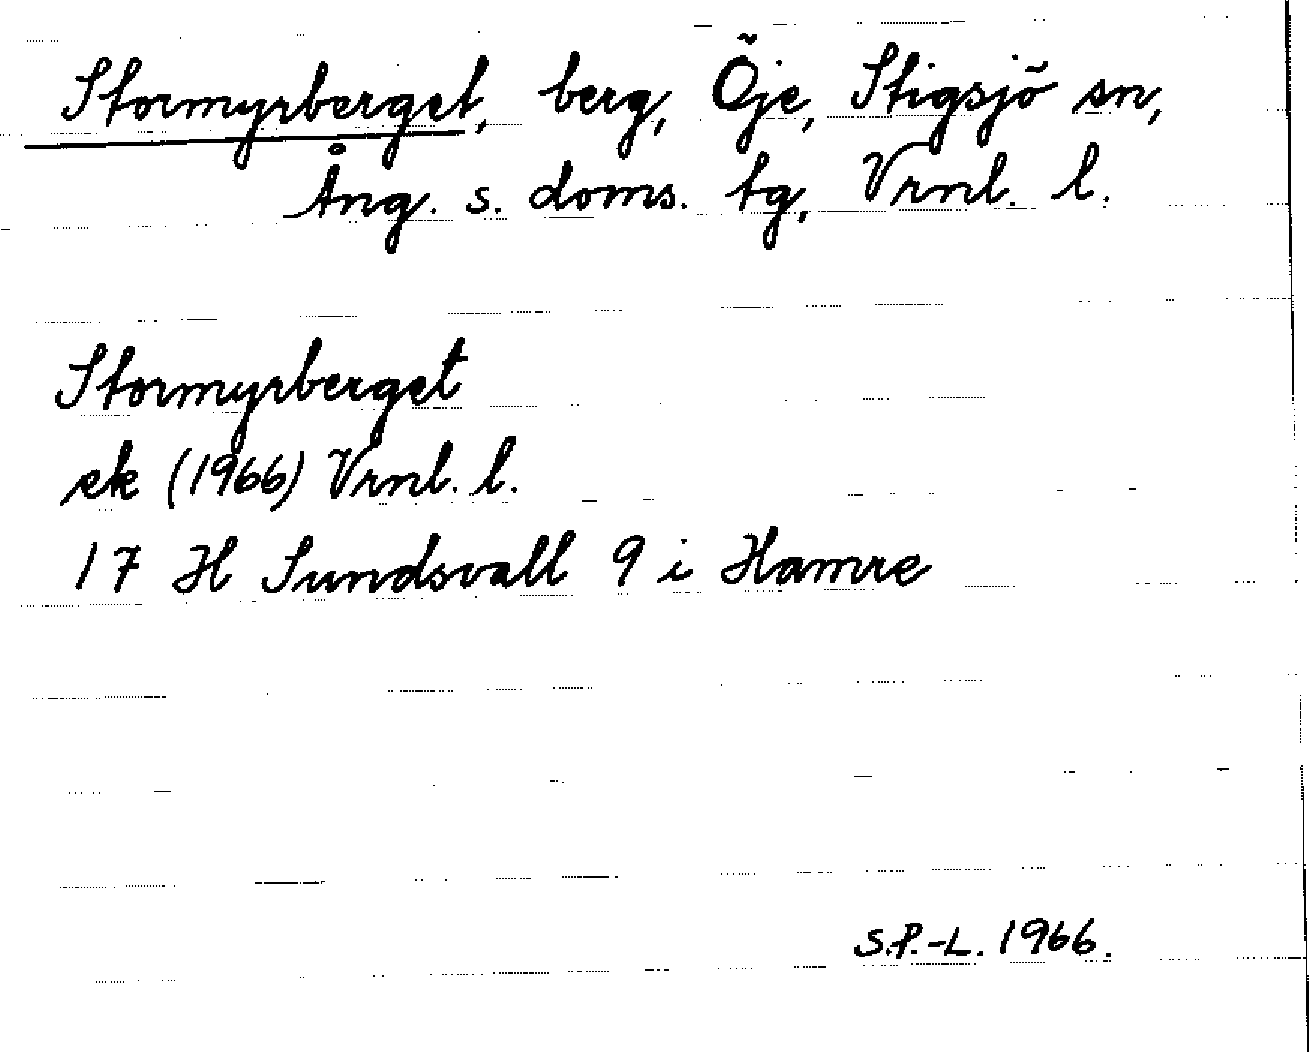 Stormyrberget, berg, Öje, Stigsjö sn,
Ång. s. doms. tg, Vrnl. l.
Stormyrberget
ek (1966) Vrnl. l.
17 H Sundsvall 9 i Hamre
S.P.-L. 1966.